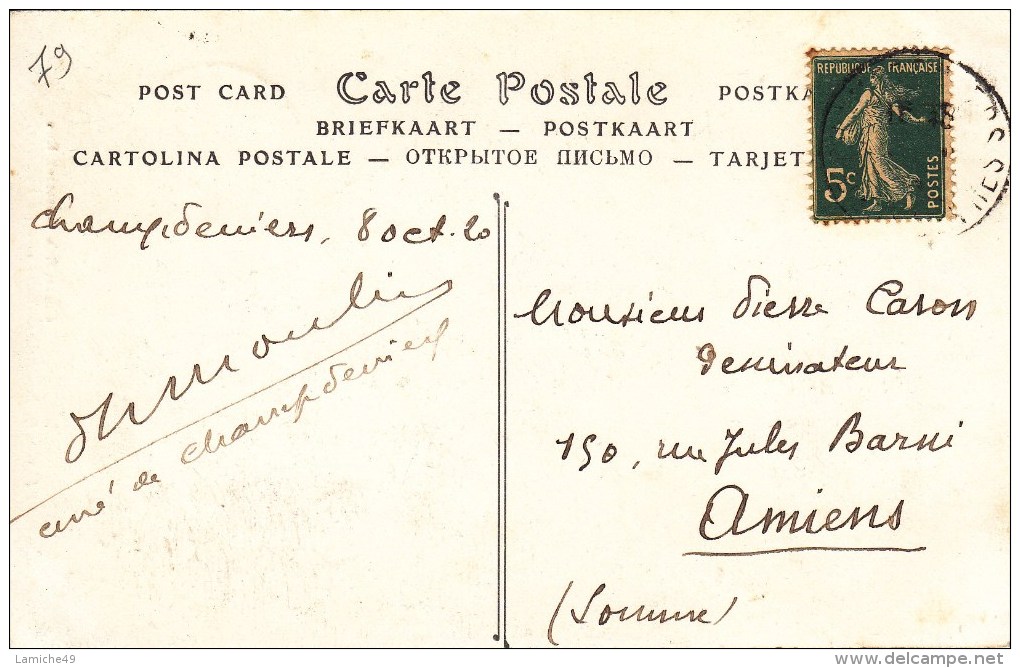 79
POST CARD Carte Postale POSTKA
BRIEFKAART — POSTKAART
CARTOLINA POSTALE — ОТКРЫТОЕ ПИСЬМО — TARJET
REPUBLIQUE FRANÇAISE
5c
POSTES
Champdeniers, 8 oct. 20
curé de Champdeniers
Monsieur Pierre Caron
Dessinateur
150, rue Jules Barni
Amiens
(Somme)
Lamiche49
www.delcampe.net